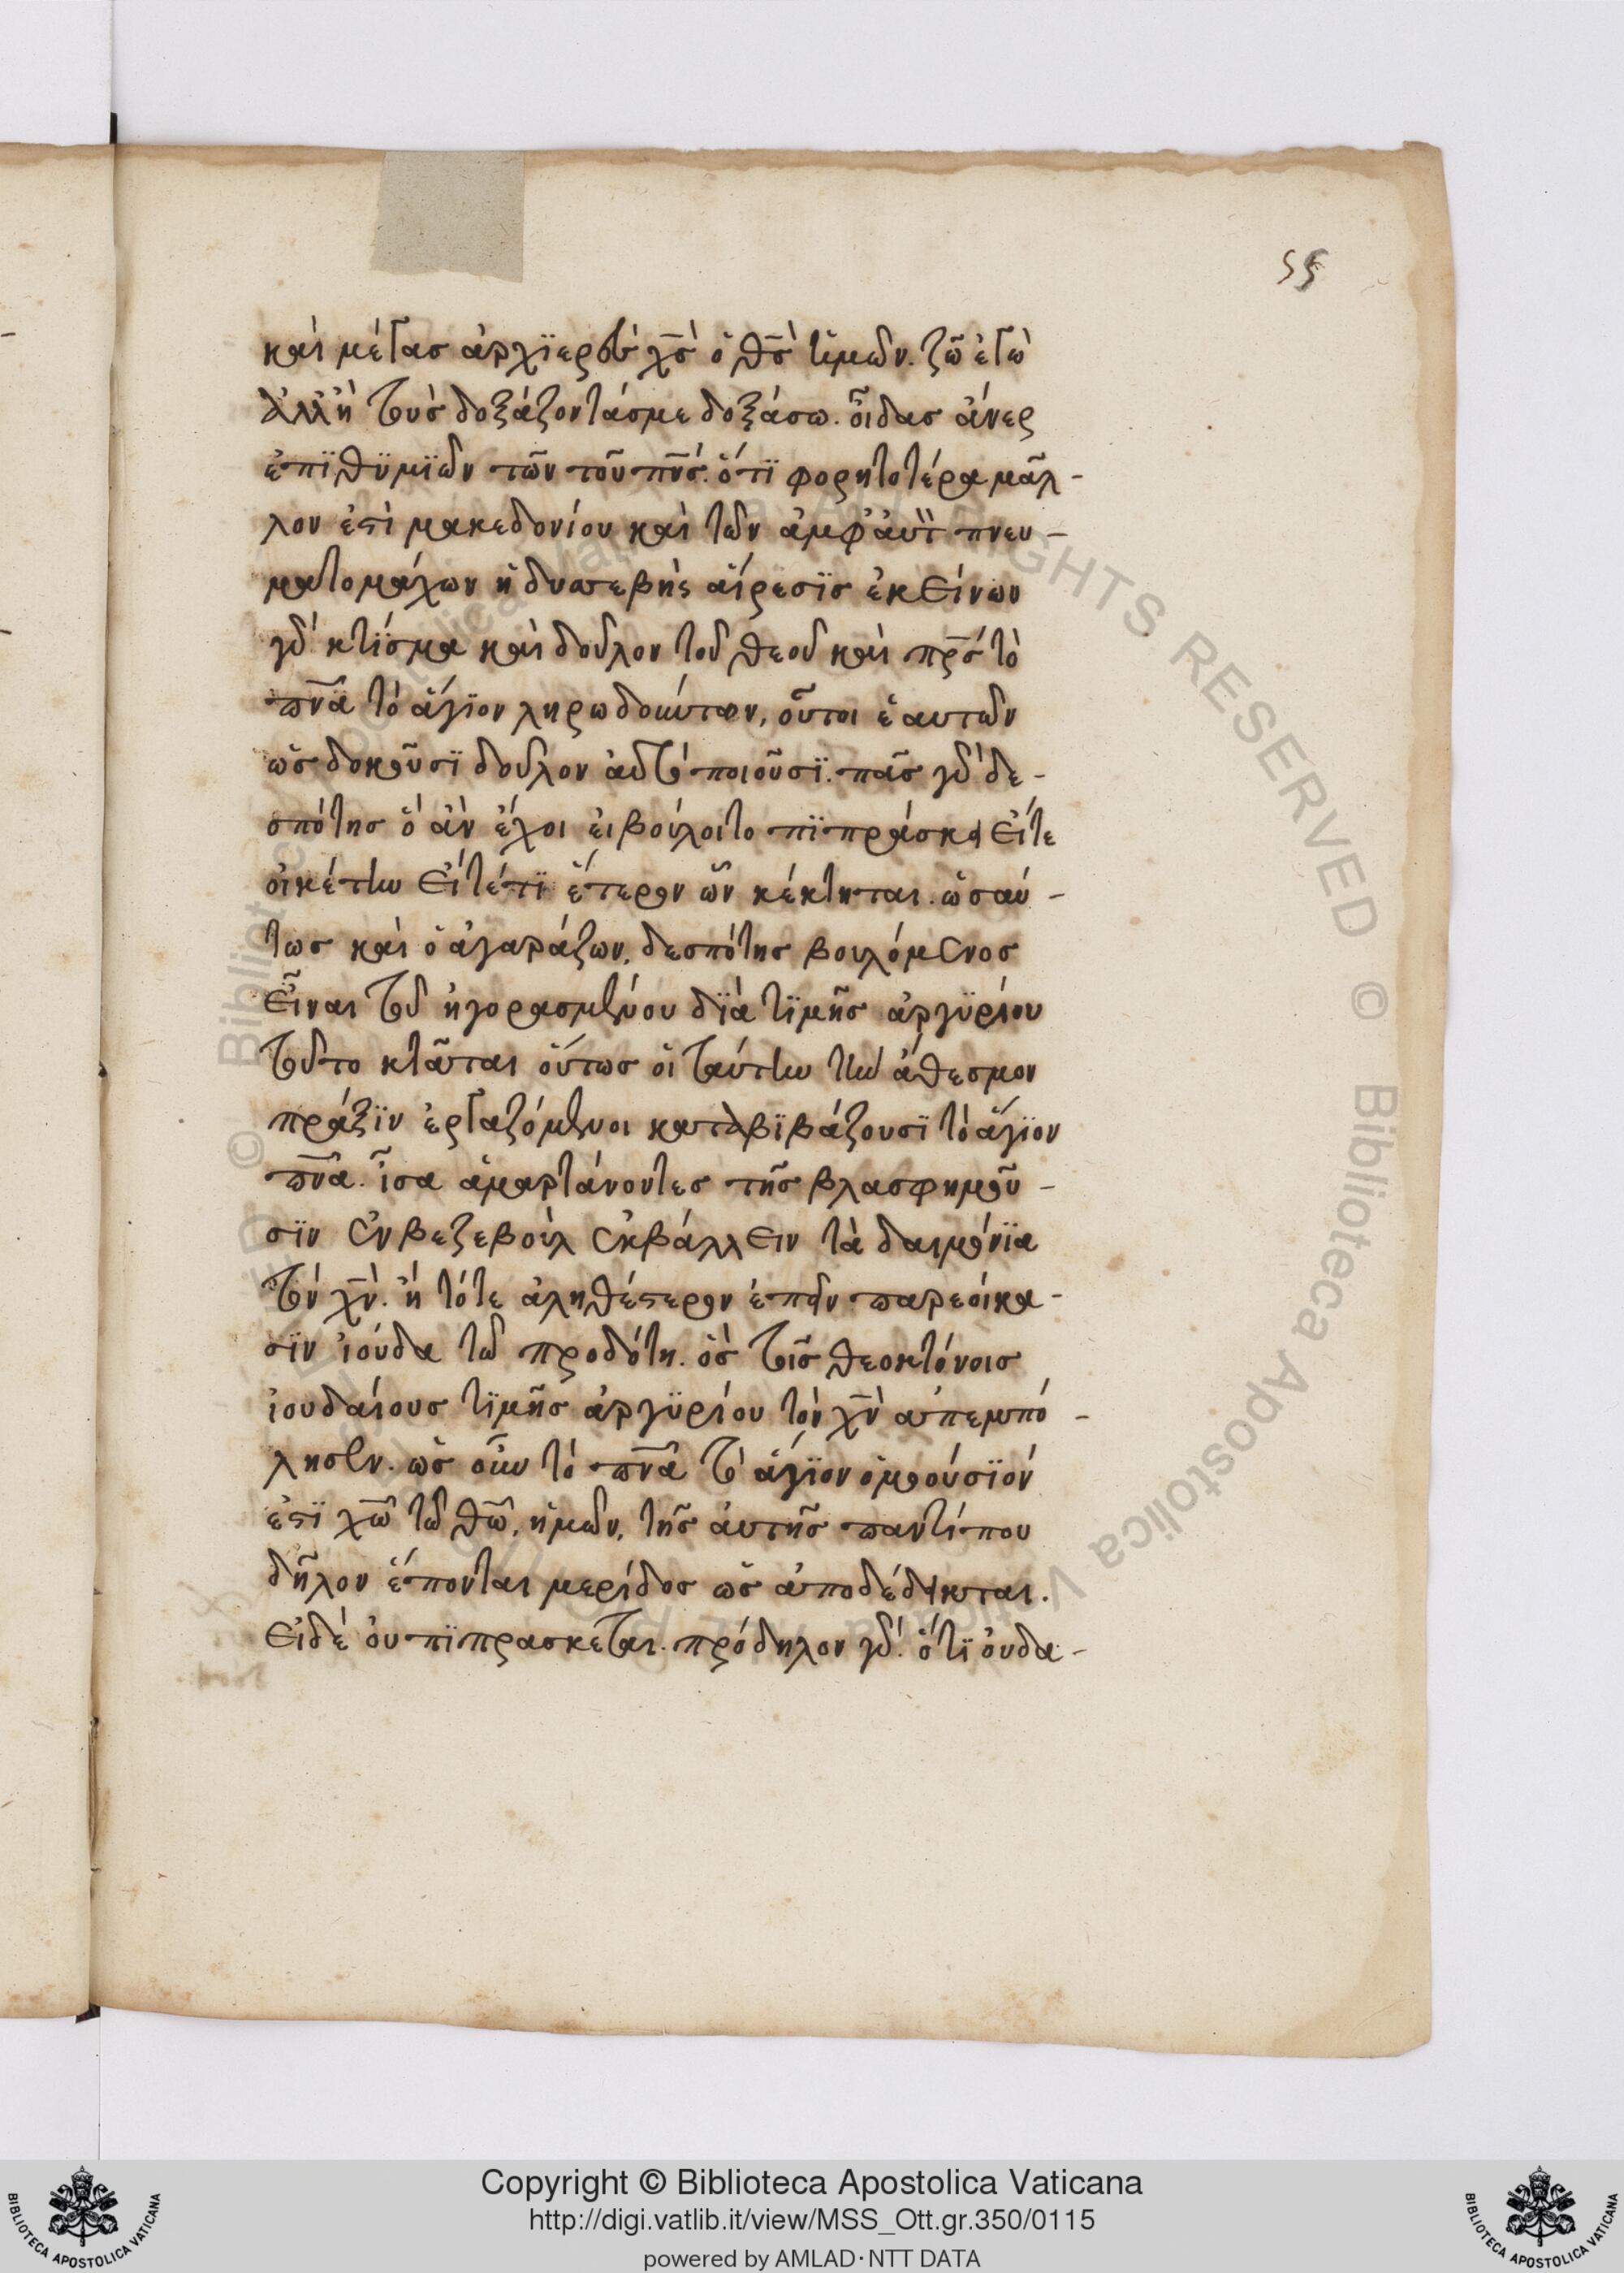 55
καὶ μέγασ ἀρχϊερεὺσ χ̅σ̀ ὁ θ̅σ̀ ἡμῶν. ζῶ ἐγὼ
ἀλλ' ἢ τοὺσ δοξάζοντάσμε δοξάσω. οἶδασ ἄνερ
ἐπϊθϋμϊῶν τῶν τοῦ π̅ν̅σ. ὅτϊ φορητοτέρα μᾶλ-
λον ἐστὶ μακεδονίου καὶ τῶν ἀμφ' αὐτ πνευ-
ματομάχων ἡ δυσσεβὴς αἵρεσϊσ ἐκείνων
γὰρ κτίσμα καὶ δοῦλον τοῦ θεοῦ καὶ π̅ρ̅σ τὸ
π̅ν̅α τὸ ἅγϊον ληρωδούντων, οὗτοι ἑαυτῶν
ὡσ δοκοῦσϊ δοῦλον αὐτὸ ποιοῦσϊ. πᾶσ γὰρ δε-
σπότησ ὃ ἂν ἔχοι ει βούλοιτο πϊπράσκει εἴτε
οἰκέτην εἴτέ τϊ ἕτερον ὧν κέκτηται. ὡσαύ-
τωσ καὶ ὁ ἀγοράζων, δεσπότησ βουλόμενοσ
εἶναι τοῦ ἠγορασμένου δϊὰ τϊμῆσ ἀργϋρίου
τοῦτο κτᾶται οὕτωσ οἱ ταύτην τὴν ἄθεσμον
πράξϊν ἐργαζόμενοι καταβϊβάζουσϊ τὸ ἅγϊον
π̅ν̅α. ἶσα ἁμαρτάνοντεσ τῆσ βλασφημοῦ-
σϊν ἐν βεζεβοὺλ ἐκβάλλειν τὰ δαιμόνϊα
τὸν χ̅ν̀. ἢ τότε ἀληθέστερον ἐπεῖν παρεοίκα-
σϊν ἰούδα τῶ προδότη. ὃσ τοῖσ θεοκτόνοισ
ἰουδαίουσ τϊμῆσ ἀργϋρίου τὸν χ̅ν̀ ἀπεμπό-
λησεν. ὡσ οὖν τὸ π̅ν̅α τὸ ἅγϊον ὁμοούσϊόν
ἐστϊ χ̅ω τῶ θ̅ω, ἡμῶν, τῆσ αὐτῆσ παντίπου
δῆλον ἕπονται μερίδοσ ὡσ ἀποδέδεικται.
εἰδὲ οὐ πϊπρασκεται. πρόδηλον γὰρ. ὅτϊ ὀυδα-
Copyright © Biblioteca Apostolica Vaticana
http://digi.vatlib.it/view/MSS_Ott.gr.350/0115
powered by AMLAD·NTT DATA